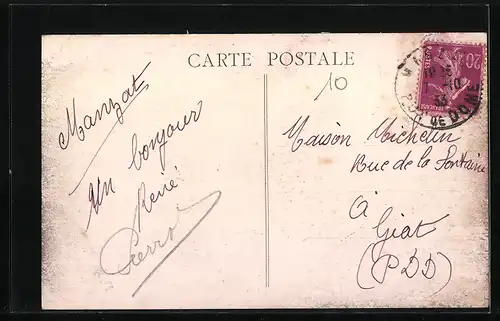 CARTE POSTALE
10
Manzat
Un bonjour
René
Pierrot
Maison Michelin
Rue de la Fontaine
à
Giat
(PDD)
20c
POSTES
DE DOME